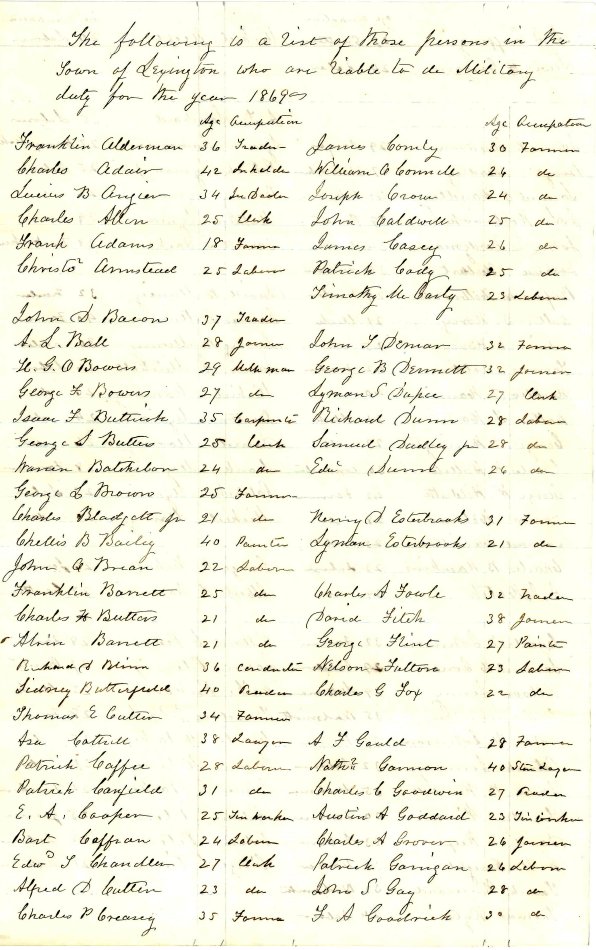 The following is a list of those persons in the
Town of Lexington who are liable to do Military
duty for the year 1869
Age Occupation
Franklin Alderman 36 Trader
Charles Adair 42
Lucius B Angier 34
Charles Allen 25 Clerk
Frank Adams 18 Farmer
Christo^r Armstead 25 Labour
John D Bacon 37 Trader
A. L. Ball 28 Joiner
H. G. O Bowers 29 Milk man
George F Bowers 27 do
Isaac F Buttrick 35 Carpenter
George S Butters 25 Clerk
Warren Batchelor 24 do
George L Browns 25 Farmer
Charles Blodgett jr 21 do
Chellis B Bailey 40 Painter
John A Brean 22 Labour
Franklin Barrett 25 do
Charles H Butters 21 do
Alvin Barrett 21 do
Richard D Blinn 36 conductor
Sidney Butterfield 40
Thomas E Cutter 34 Farmer
Asa Cottrell 38 Lawyer
Patrick Coffee 28 Labour
Patrick Canfield 31 do
E. A. Cooper 25 Tin worker
Bart Caffran 24 Labour
Edw^d T Chandler 27 Clerk
Alfred D Cutter 23 do
Charles P Creasey 35 Farmer
Age Occupation
James Comly 30 Farmer
William O Connell 26 do
Joseph Crow 24 do
John Caldwell 25 do
James Casey 26 do
Patrick Cody 25 do
Timothy McCarty 23 Labour
John T Demar 32 Farmer
George B Dennett 32 Joiner
Lyman S Dupee 27 Clerk
Richard Dunn 28 Labour
Samuel Dudley jr 28 do
Edw Dunn 26 do
Henry D Esterbrooks 31 Farmer
Lyman Esterbrooks 21 do
Charles A Fowle 32 Trader
David Fitch 38 Joiner
George Flint 27 Painter
Nelson Fulton 23 Labour
Charles G Fox 22 do
A F Gould 28 Farmer
Nath^l Gammon 40
Charles C Goodwin 27
Austin A Goddard 23 Tin worker
Charles A Grover 26 Joiner
Patrick Garrigan 26 Labour
John S Gay 28 do
F A Goodrick 30 do